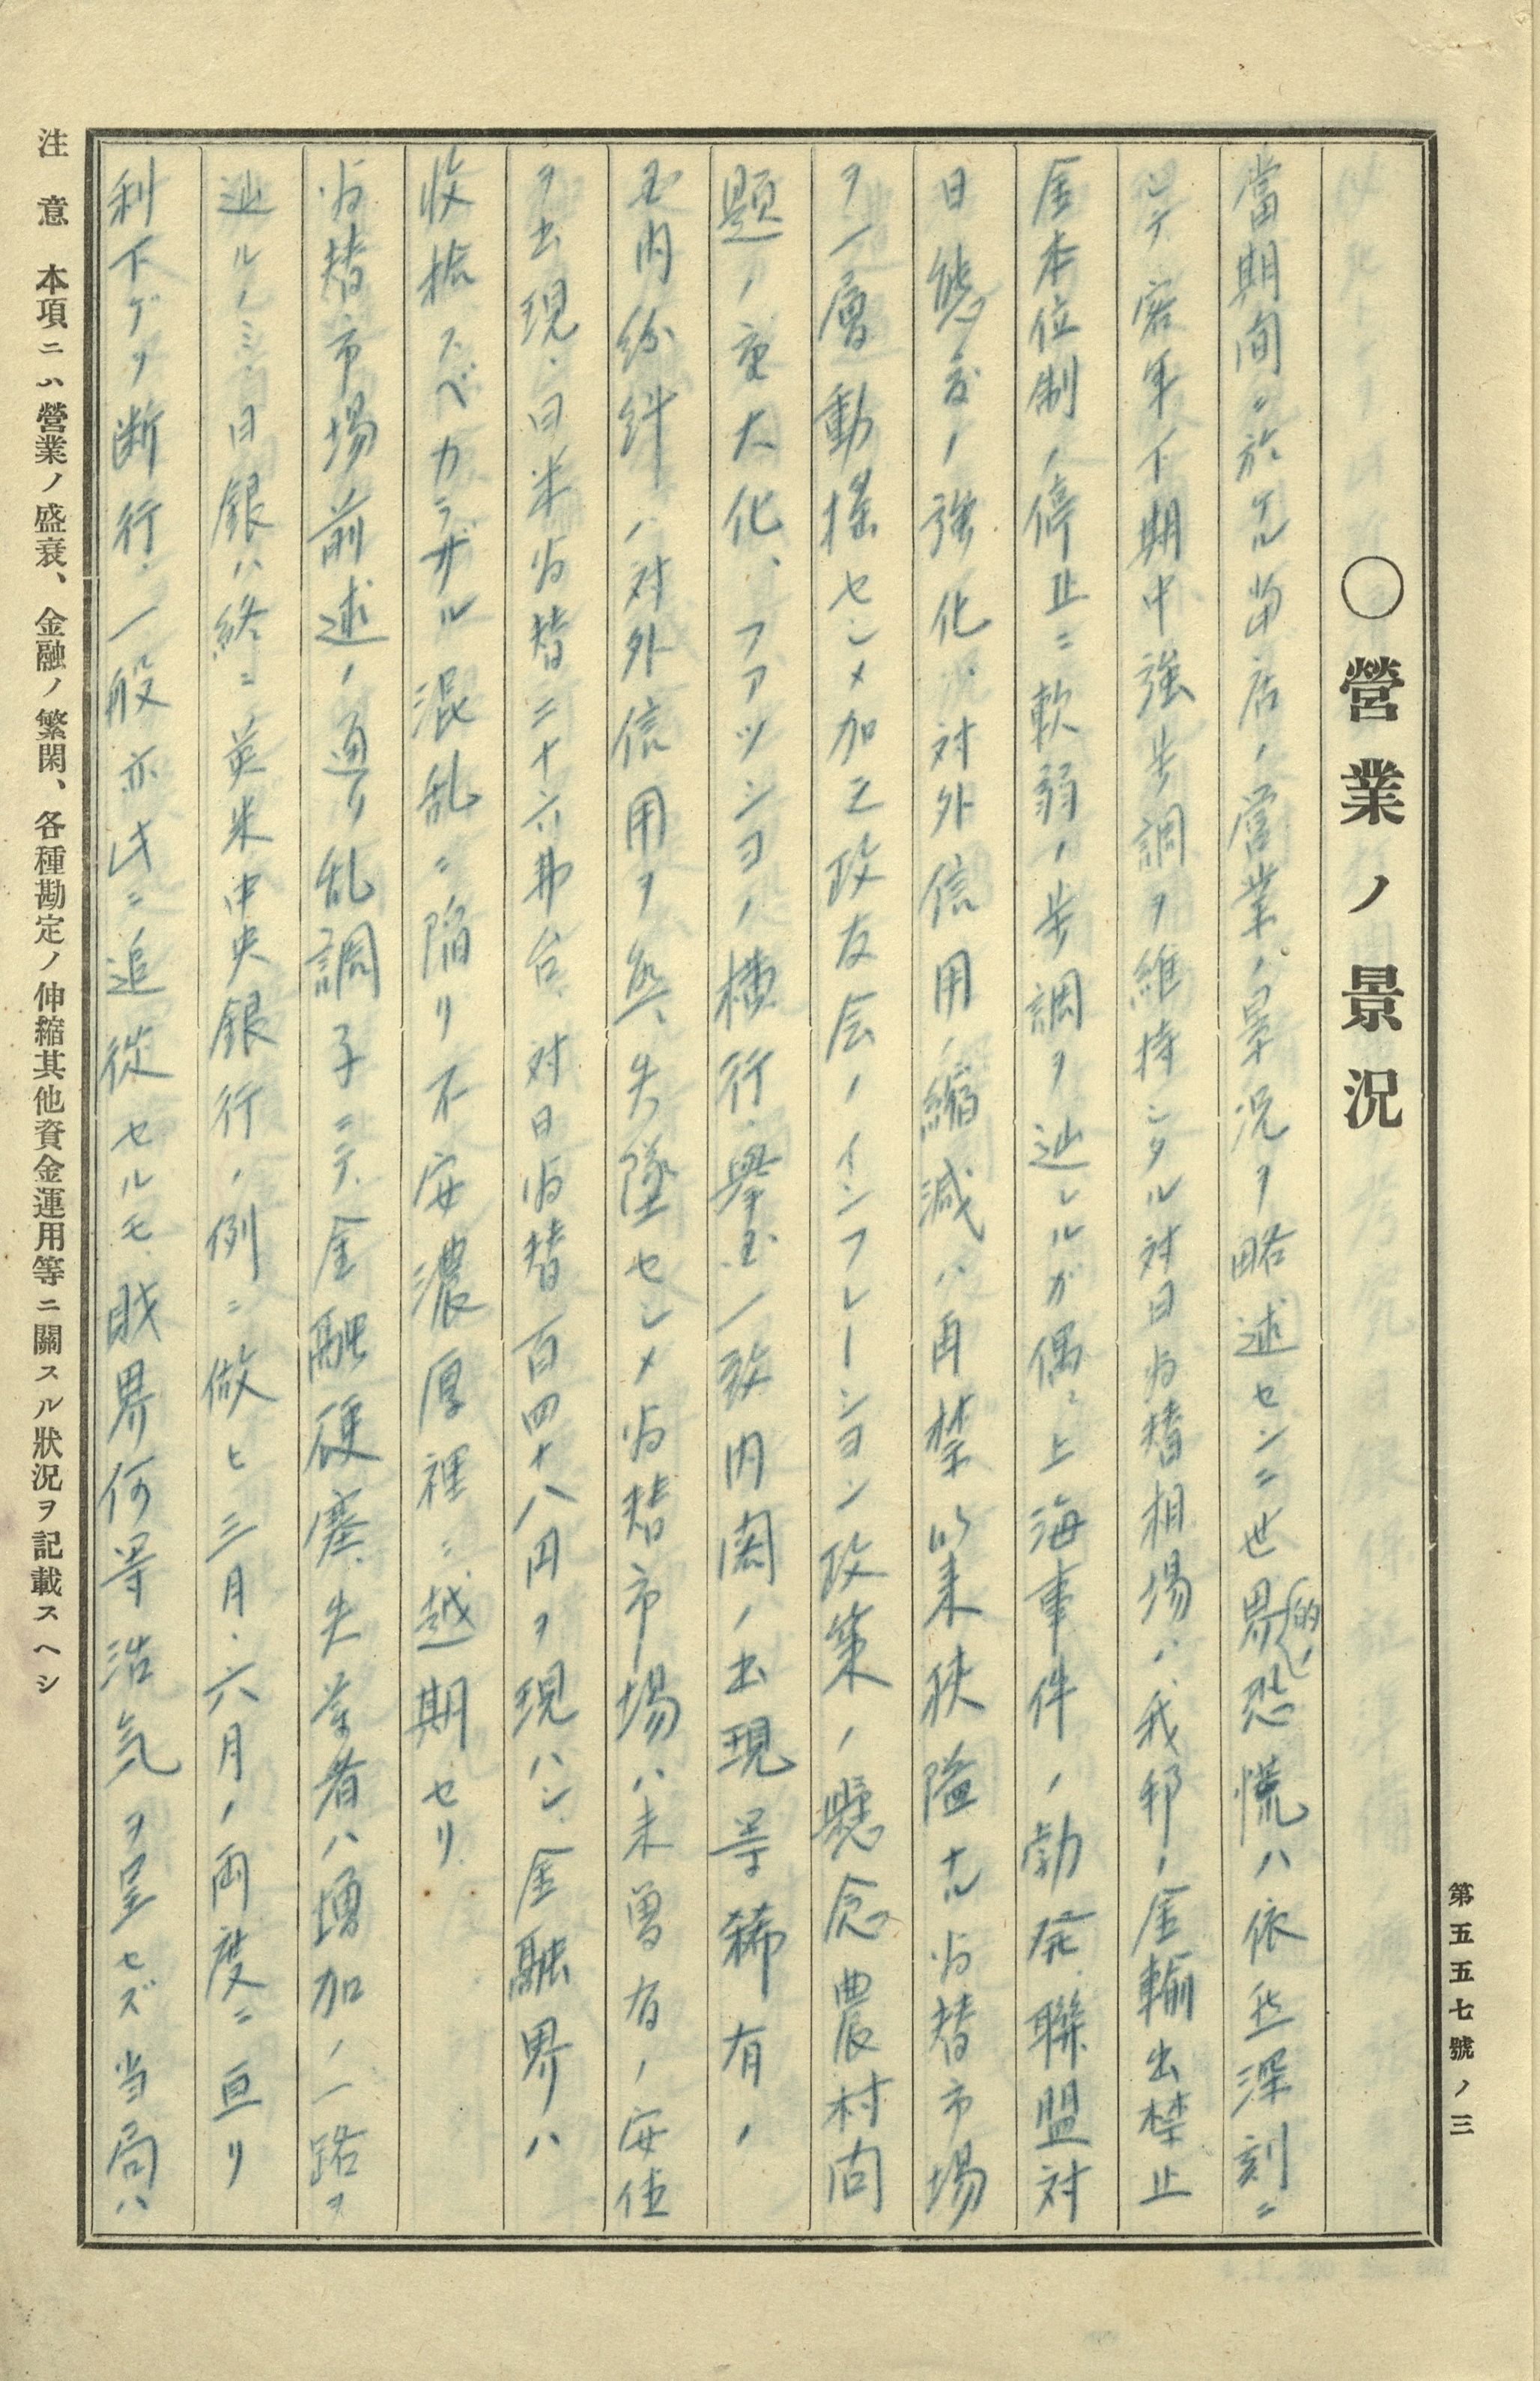 第五五七號ノ三
〇營業ノ景況
當期間ニ於ケル當店ノ營業ノ景況ヲ略述センニ世界的ノ恐慌ハ依然深刻ニ
シテ客年下期中強步調ヲ維持シタル対日為替相場ハ、我邦ノ金輸出禁止
金本位制ノ停止ニ軟弱ノ步調ヲ辿レルガ偶々上海事件ノ勃発、聯盟対
日態度ノ強化、対外信用ノ縮減ハ再禁以来狹隘ナル為替市場
ヲ一層動搖セシメ加之政友会ノインフレーション政策ノ懸念農村问
題ノ重大化、ファッショノ横行、擧国一致内閣ノ出現等稀有ノ
国内紛糾ハ対外信用ヲ失墜セシメ為替市場ハ未曽有ノ安値
ヲ出現、日米為替二十六弗台、対日為替百四十八円ヲ現ハシ、金融界ハ
收拾スベカラザル混乱ニ陥リ不安濃厚裡ニ越期セリ
為替市場前述ノ通リ乱調子ニテ、金融硬塞、失業者ハ増加ノ一路ヲ
辿ルノミ、日銀ハ終ニ英米中央銀行ノ例ニ倣ヒ三月、六月ノ両度ニ亘リ
利下ゲヲ断行、一般亦此ニ追從セルモ、財界何等活気ヲ呈セズ当局ハ
注意 本項ニハ營業ノ盛衰、金融ノ繁閑、各種勘定ノ伸縮其他資金運用等ニ關スル狀況ヲ記載スヘシ